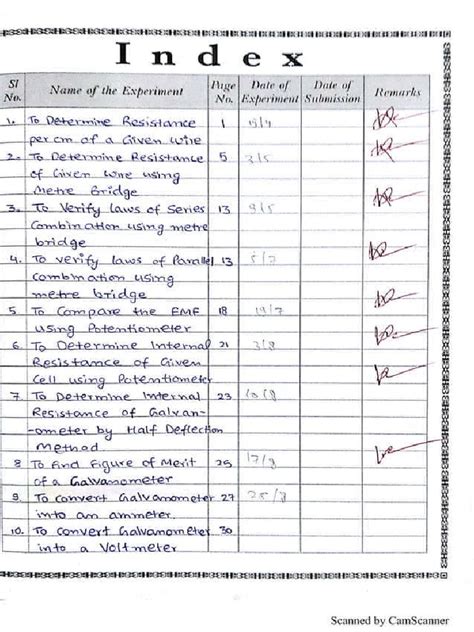 Index
Sl No. Name of the Experiment Page No. Date of Experiment Date of Submission Remarks
1. To Determine Resistance 1
per cm of a Given wire
2. To Determine Resistance 5 3/5
of Given wire using
Metre Bridge
3. To Verify laws of Series 13 9/5
Combination using metre
bridge
4. To verify laws of Parallel 13
Combnation using
metre bridge
5 To Compare the EMF 18 19/7
using Potentiometer
6. To Determine Internal 21 3/8
Resistance of Given
Cell using Potentiometer
7. To Determine Internal 23 10/8
Resistance of Galvan-
ometer by Half Deflection
Method
8 To find Figure of Merit 25 17/8
of a Galvanometer
9. To convert Galvanometer 27 25/8
into an ammeter
10. To convert Galvanometer 30
into a Voltmeter
Scanned by CamScanner